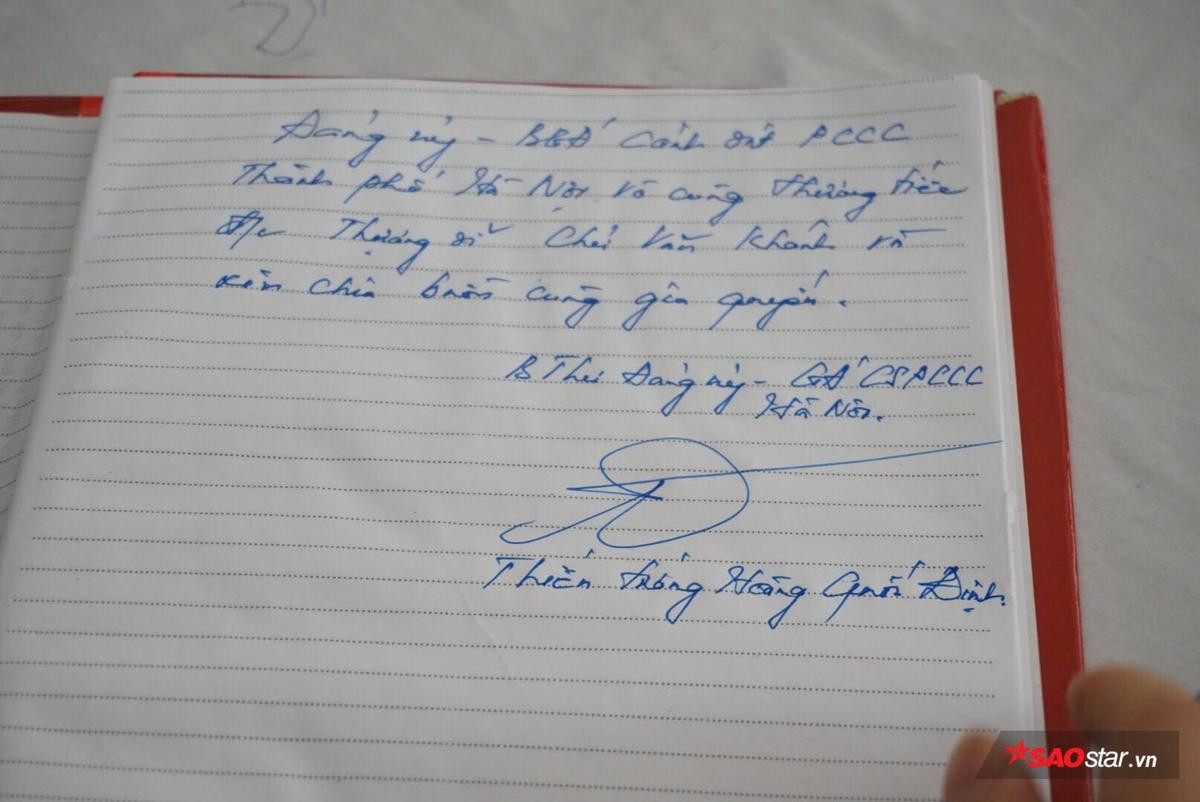 Đảng ủy - BGĐ Cảnh sát PCCC
Thành phố Hà Nội vô cùng thương tiếc
đ/c Thượng sĩ Chử Văn Khánh và
xin chia buồn cùng gia quyến.
B Thư Đảng ủy - GĐ CSPCCC
Hà Nội.
Thiếu tướng Hoàng Quốc Định
SAOstar.vn